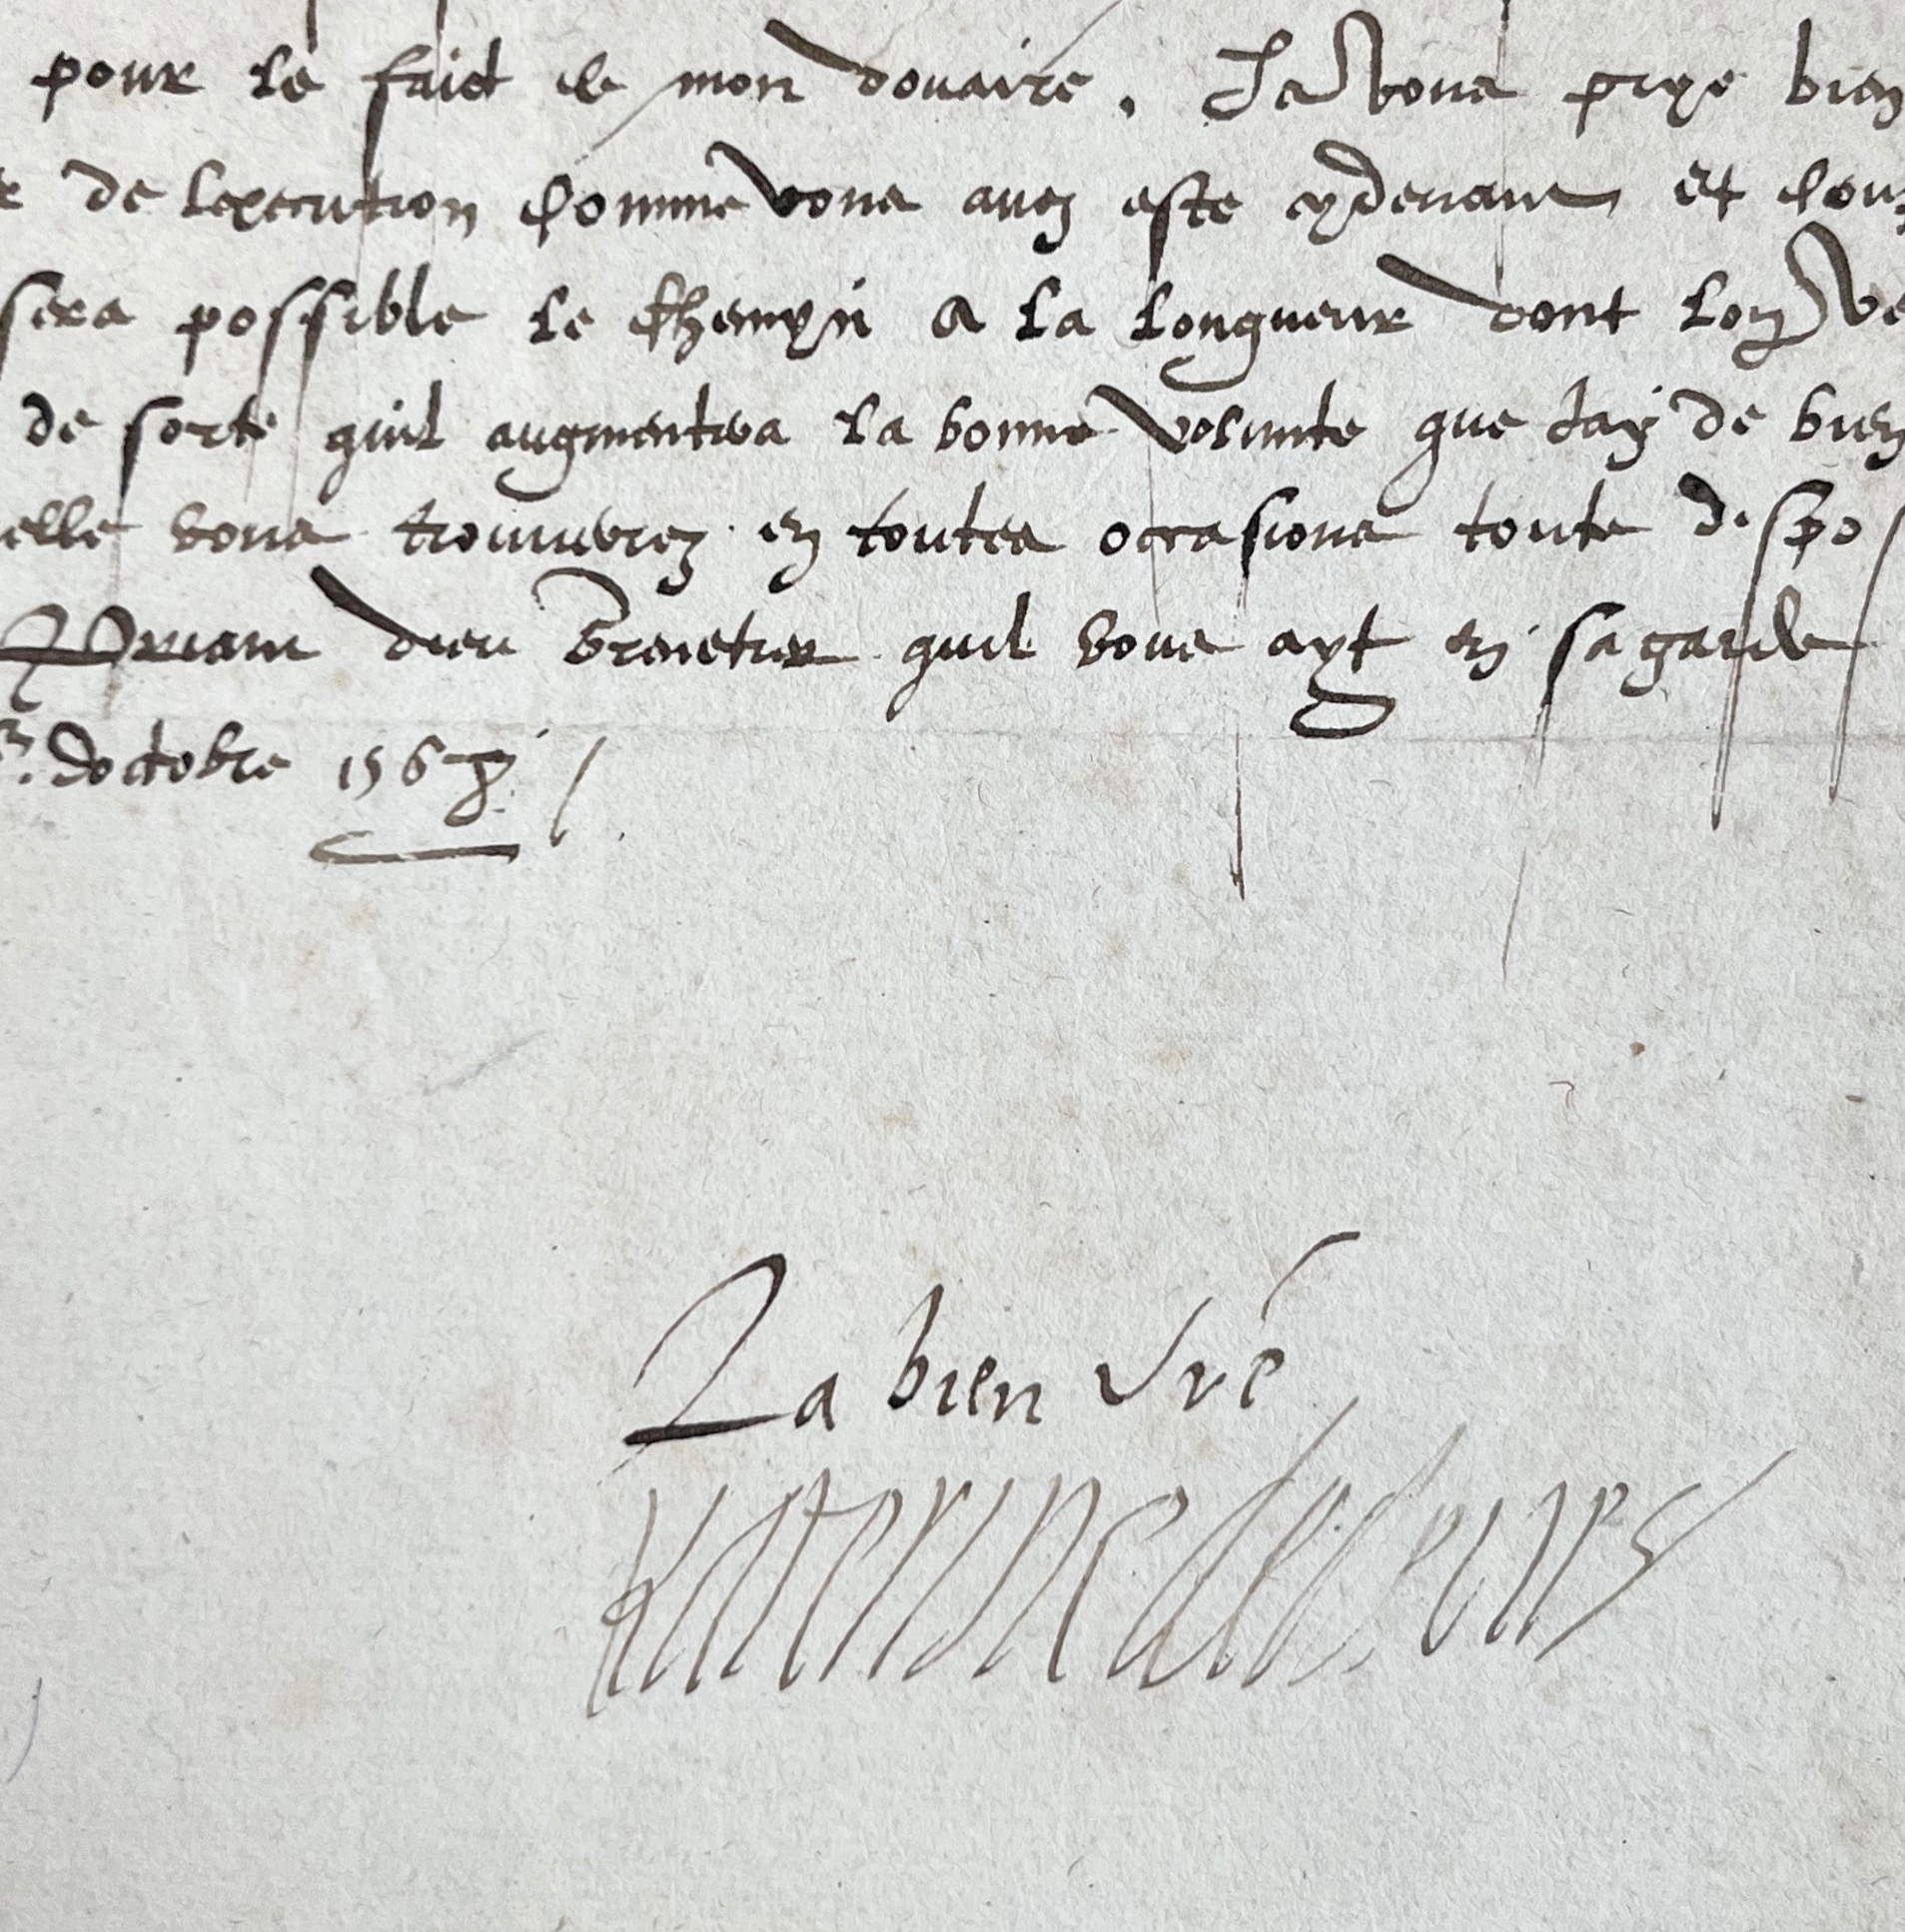 pour le faict de mon douaire. Je vous prye bien
de lexecution comme vous avez este cydevant et
sera possible le chemyn a la longueur dont lon
de sorte quil augmentera la bonne volunte que jay de bien
elle vous trouverez en toutes occasions toute dispos
Priant dieu quil vous ayt en sa garde
doctobre 1567
La bien vre
Katerine de